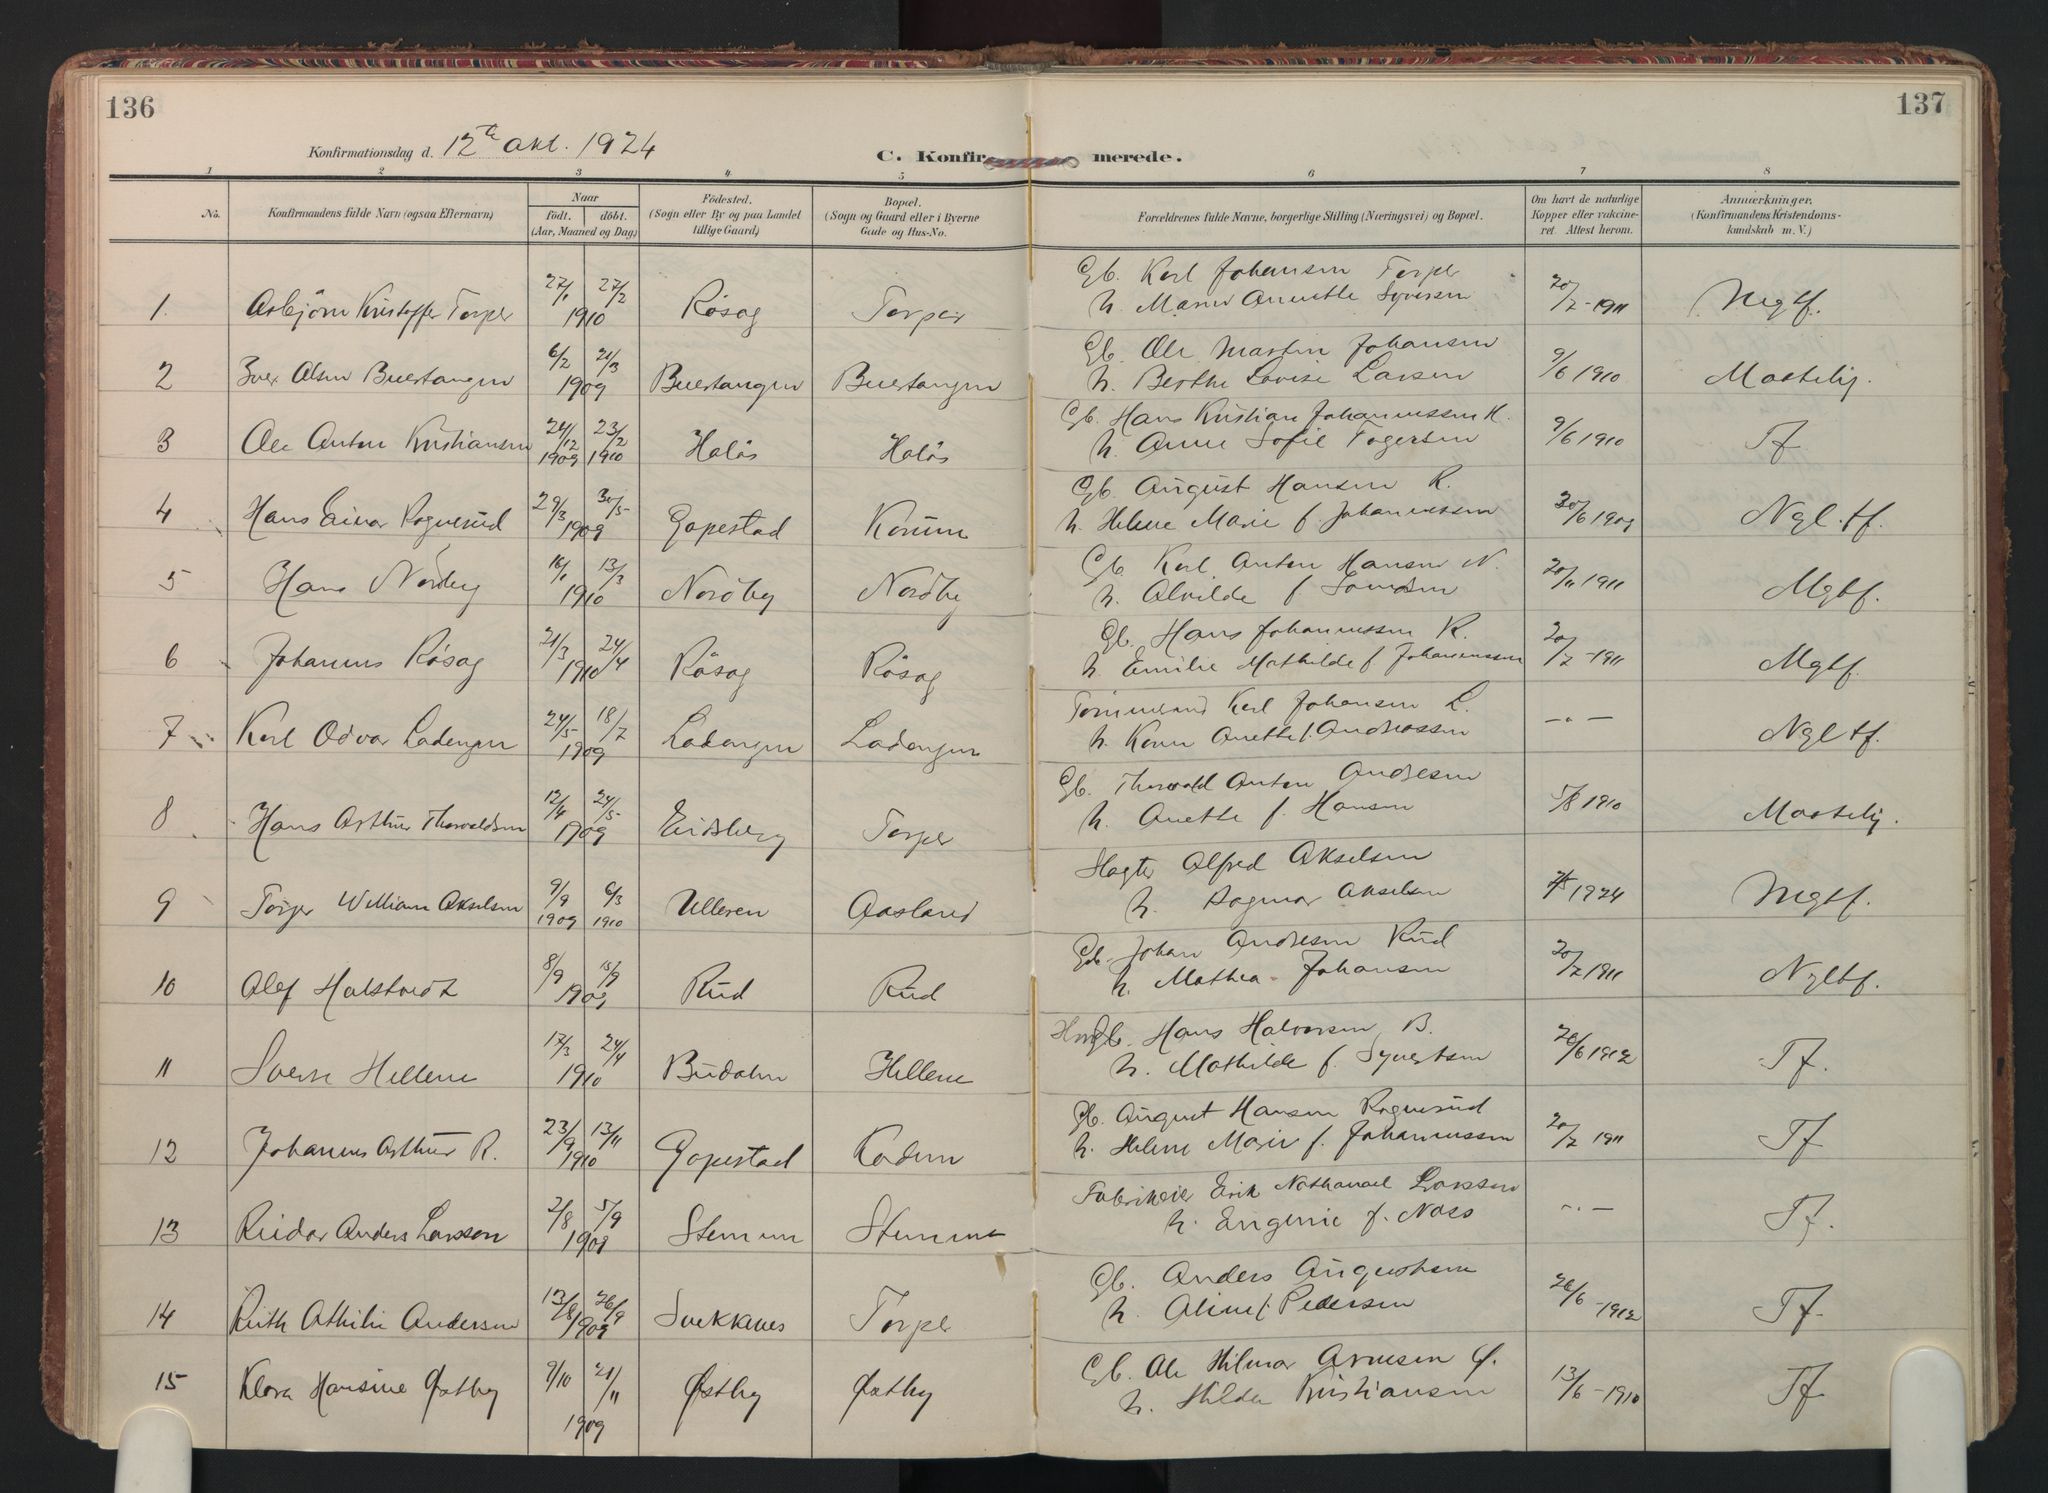 136
137
Konfirmationsdag d. 12te Okt. 1924
C. Konfirmerede.
1 2 3 4 5 6 7 8
No.
Konfirmandens fulde Navn (ogsaa Efternavn)
Naar
födt. döbt.
(Aar, Maaned og Dag)
Födested.
(Sogn eller By og paa Landet
tillige Gaard)
Bopæl.
(Sogn og Gaard eller i Byerne
Gade og Hus-No.
Forældrenes fulde Navne, borgerlige Stilling (Næringsvei) og Bopæl.
Om havt de naturlige
Kopper eller vakcine-
ret. Attest herom.
Anmærkninger.
(Konfirmandens Kristendoms-
kundskab m. V.)
1. Asbjörn Kristoffer Torper 27/1 27/2 1910 Rösag Torper Gb. Karl Johansen Torper
h. Maren Annette Syversen 20/2-1911 Mgtf.
2 Olsen Buertangen 6/2 21/3 1909 Buertangen Buertangen Gb. Ole Martin Johansen
h. Berthe Lovise Larsen 9/6 1910 Maatelig.
3 Ole Anton Kristiansen 24/12 1909 23/2 1910 Halås Halås Gb. Hans Kristian Johannessen H.
h. Anne Sofie Togersen 9/6 1910 Tf
4 Hans Einar Rognerud 29/3 30/5 1909 Gopestad Gb. August Hansen R.
h. Helene Marie f. Johannessen 30/6 1909 Ngl. tf.
5 Hans Nordby 16/1 13/3 1910 Nordby Nordby Gb. Karl Anton Hansen N.
h. Alvilde f. 20/11 1911 Mgtf.
6 Johannes Rösag 21/3 24/4 1910 Rösag Rösag Gb. Hans Johannessen R.
h. Emilie Mathilde f. Johannessen 20/2-1911 Mgtf.
7 Karl Odvar Ladengen 24/5 18/7 1909 Ladengen Ladengen Tömmermd Karl Johansen L.
h. Karen Anette f. Andreassen -"- Ngl tf.
8 Hans Arthur Thorvaldsen 12/4 24/5 1909 Eidsberg Torper Gb. Thorvald Anton Andresen
h. Anette f. Hansen 5/8 1910 Maatelig.
9 Torger William Akselsen 9/9 1909 6/3 1910 Ulleren Aasland Slagter Alfred Akselsen
h. Dagmar Akselsen 1924 Mgtf.
10 Olef Halstvedt 8/9 15/9 1909 Rud Rud Gb. Johan Andresen Rud
h. Mathea Johansen 20/2 1911 Ngltf.
11 Sverre Hellene 17/3 24/4 1910 Budalen Hellene Hans Halvorsen B.
h. Mathilde f. Syvertsen 26/6 1912 Tf.
12 Johannes Arthur R. 23/9 13/11 1910 Gopestad Gb. August Hansen Rognerud
h. Helene Marie f. Johannessen 20/2 1911 Tf
13 Reidar Anders Larsson 2/8 5/9 1909 Stemmen Stemmen Fabrikeier Erik Nathanael Larsson
h. Eugenie f. Næss -"- Tf.
14 Ruth Athilie Andersen 13/8 26/9 1909 Svekknes Torper Gb. Anders Augustsen
h. Aline f. Pedersen 26/6-1912 Tf
15 Klara Hansine Østby 9/10 21/11 1909 Østby Østby Gb. Ole Hilmar Arnesen Ø.
h. Hilda Kristiansen 13/6-1910 Tf